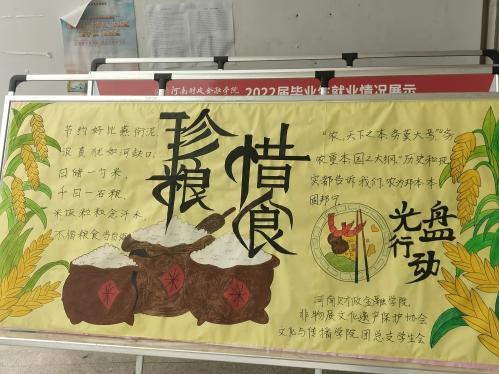 河南财政金融学院 2022届毕业生就业情况展示
珍粮
惜食
节约好比燕衔泥，
浪费犹如河缺口，
日储一勺米，
千日一石粮，
米饭粒粒念汗水，
不惜粮食当自
"农，天下之本，务莫大焉""务
农重本，国之大纲。"历史和现
实都告诉我们，农为邦本，本
固邦宁。
光盘
行动
河南财政金融学院
非物质文化遗产保护协会
文化与传播学院团总支学生会